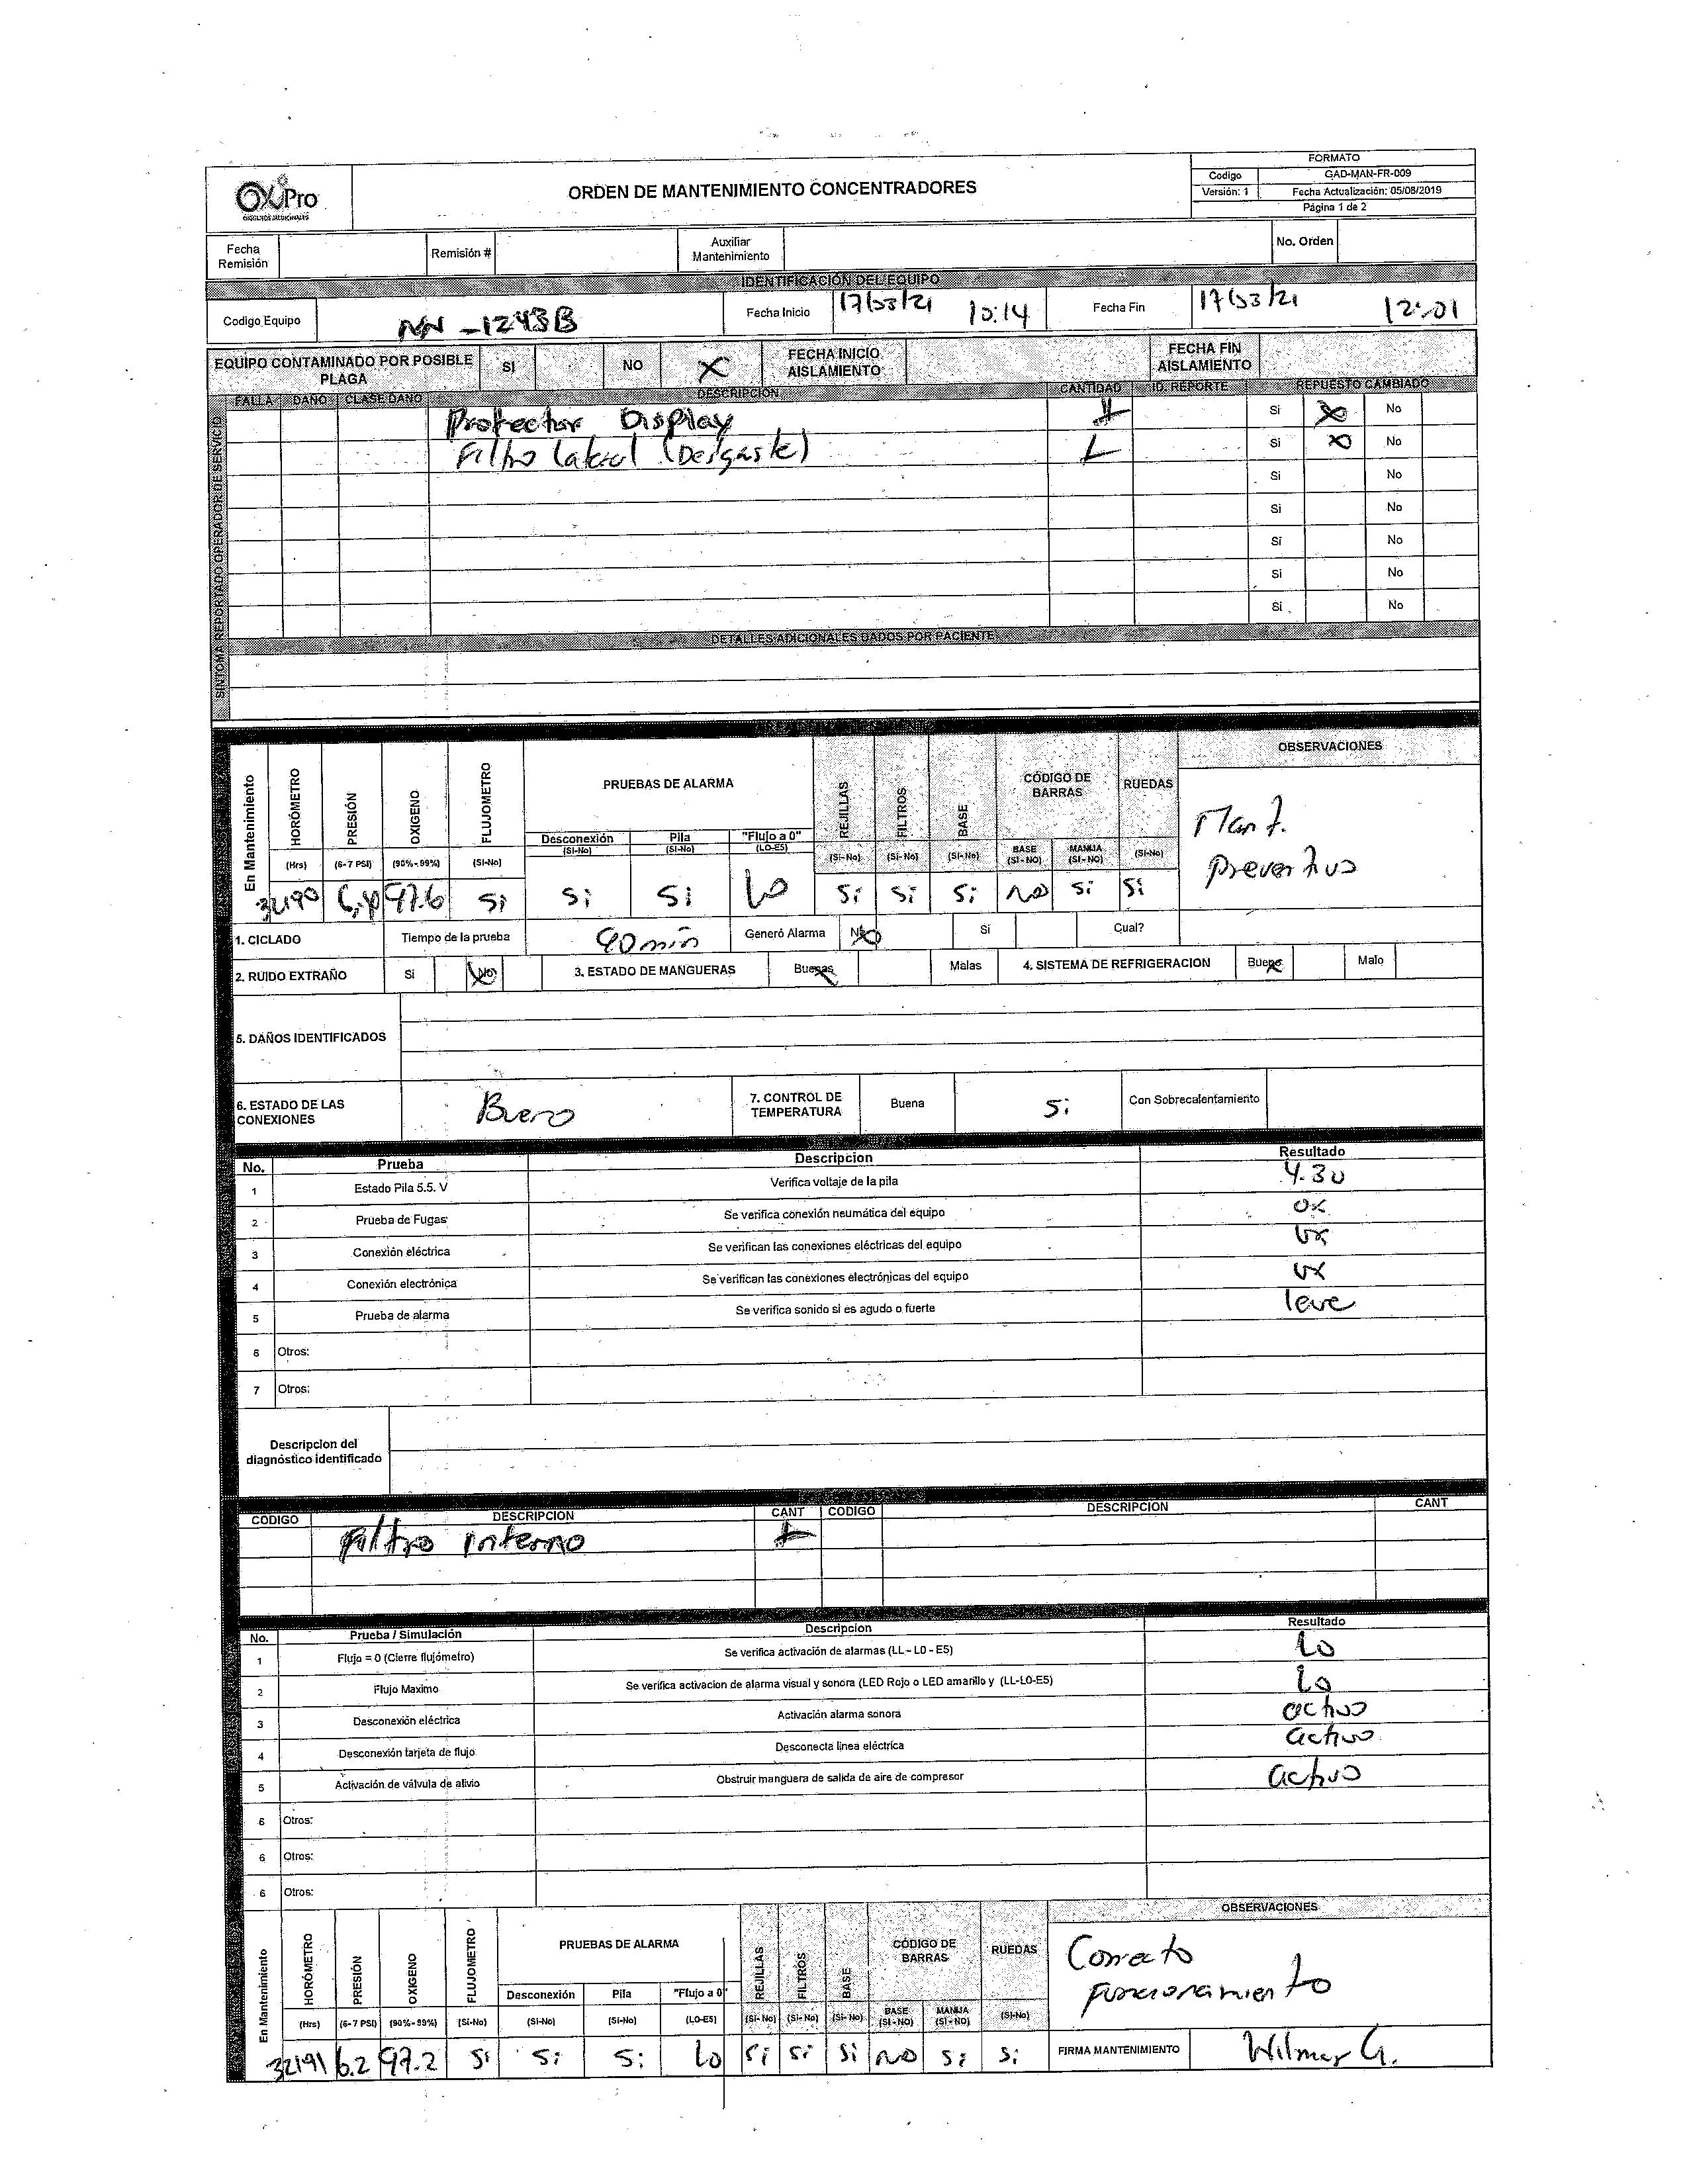 OXiPro
OXIGENOS MEDICINALES
ORDEN DE MANTENIMIENTO CONCENTRADORES
FORMATO
Codigo GAD-MAN-FR-009
Versión: 1 Fecha Actualización: 05/08/2019
Página 1 de 2
Fecha Remisión Remisión # Auxiliar Mantenimiento No. Orden
IDENTIFICACIÓN DEL EQUIPO
Codigo Equipo NN -1243B Fecha Inicio 17/03/21 10:14 Fecha Fin 17/03/21 12:01
EQUIPO CONTAMINADO POR POSIBLE PLAGA SI NO X FECHA INICIO AISLAMIENTO FECHA FIN AISLAMIENTO
SINTOMA REPORTADO OPERADOR DE SERVICIO
FALLA DAÑO CLASE DAÑO DESCRIPCIÓN CANTIDAD ID. REPORTE REPUESTO CAMBIADO
Protector Display 1 Si X No
Filtro lateral (Desgaste) 1 Si X No
Si No
Si No
Si No
Si No
Si No
DETALLES ADICIONALES DADOS POR PACIENTE
En Mantenimiento HORÓMETRO PRESIÓN OXIGENO FLUJOMETRO PRUEBAS DE ALARMA REJILLAS FILTROS BASE CÓDIGO DE BARRAS RUEDAS OBSERVACIONES
Desconexión Pila "Flujo a 0"
(Hrs) (6-7 PSI) (90%-99%) (SI-No) (SI-No) (SI-No) (LO-E5) (SI-No) (SI-No) (SI-No) BASE (SI-NO) MANIJA (SI-NO) (SI-No)
32190 97.6 Si Si Si Lo Si Si Si NO Si Si
Mant.
preventivo
1. CICLADO Tiempo de la prueba 90 min Generó Alarma No X Si Cual?
2. RUIDO EXTRAÑO Si No X 3. ESTADO DE MANGUERAS Buenas X Malas 4. SISTEMA DE REFRIGERACION Bueno X Malo
5. DAÑOS IDENTIFICADOS
6. ESTADO DE LAS CONEXIONES Bueno 7. CONTROL DE TEMPERATURA Buena Si Con Sobrecalentamiento
No. Prueba Descripcion Resultado
1 Estado Pila 5.5. V Verifica voltaje de la pila 4.30
2 Prueba de Fugas Se verifica conexión neumática del equipo OK
3 Conexión eléctrica Se verifican las conexiones eléctricas del equipo OK
4 Conexión electrónica Se verifican las conexiones electrónicas del equipo OK
5 Prueba de alarma Se verifica sonido si es agudo o fuerte leve
6 Otros:
7 Otros:
Descripcion del diagnóstico identificado
CODIGO DESCRIPCION CANT CODIGO DESCRIPCION CANT
Filtro interno 1
No. Prueba / Simulación Descripcion Resultado
1 Flujo = 0 (Cierre flujómetro) Se verifica activación de alarmas (LL - L0 - E5) Lo
2 Flujo Maximo Se verifica activacion de alarma visual y sonora (LED Rojo o LED amarillo y (LL-L0-E5) Lo
3 Desconexión eléctrica Activación alarma sonora activo
4 Desconexión tarjeta de flujo Desconecta linea eléctrica activo
5 Activación de válvula de alivio Obstruir manguera de salida de aire de compresor activo
6 Otros:
6 Otros:
6 Otros:
En Mantenimiento HORÓMETRO PRESIÓN OXIGENO FLUJOMETRO PRUEBAS DE ALARMA REJILLAS FILTROS BASE CÓDIGO DE BARRAS RUEDAS OBSERVACIONES
Desconexión Pila "Flujo a 0"
(Hrs) (6-7 PSI) (90%-99%) (SI-No) (SI-No) (SI-No) (LO-E5) (SI-No) (SI-No) (SI-No) BASE (SI-NO) MANIJA (SI-NO) (SI-No)
Correcto
funcionamiento
32191 6.2 97.2 Si Si Si Lo Si Si Si NO Si Si FIRMA MANTENIMIENTO Wilmer G.